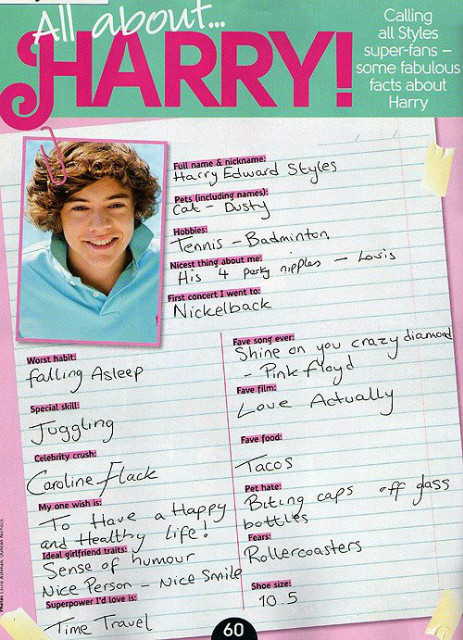 All about...
HARRY!
Calling
all Styles
super-fans –
some fabulous
facts about
Harry
Full name & nickname:
Harry Edward Styles
Pets (including names):
Cat - Dusty
Hobbies:
Tennis - Badminton
Nicest thing about me:
His 4 perky nipples - Louis
First concert I went to:
Nickelback
Worst habit:
falling Asleep
Special skill:
Juggling
Celebrity crush:
Caroline Flack
My one wish is:
To Have a Happy
and Healthy Life!
Ideal girlfriend traits:
Sense of humour
Nice Person - Nice Smile
Superpower I'd love is:
Time Travel
Fave song ever:
Shine on you crazy diamond
- Pink floyd
Fave film:
Love Actually
Fave food:
Tacos
Pet hate:
Biting caps off glass
bottles
Fears:
Rollercoasters
Shoe size:
10.5
60